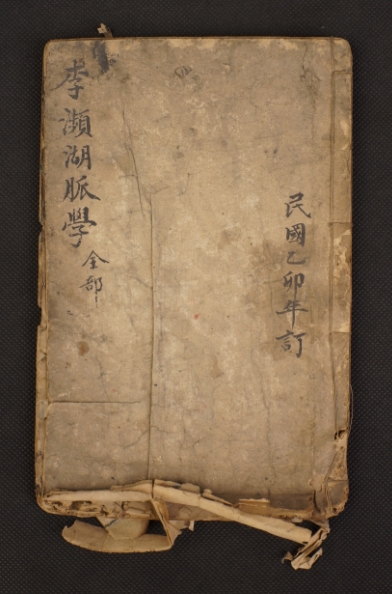 民國乙卯年訂
李瀕湖脈學全部